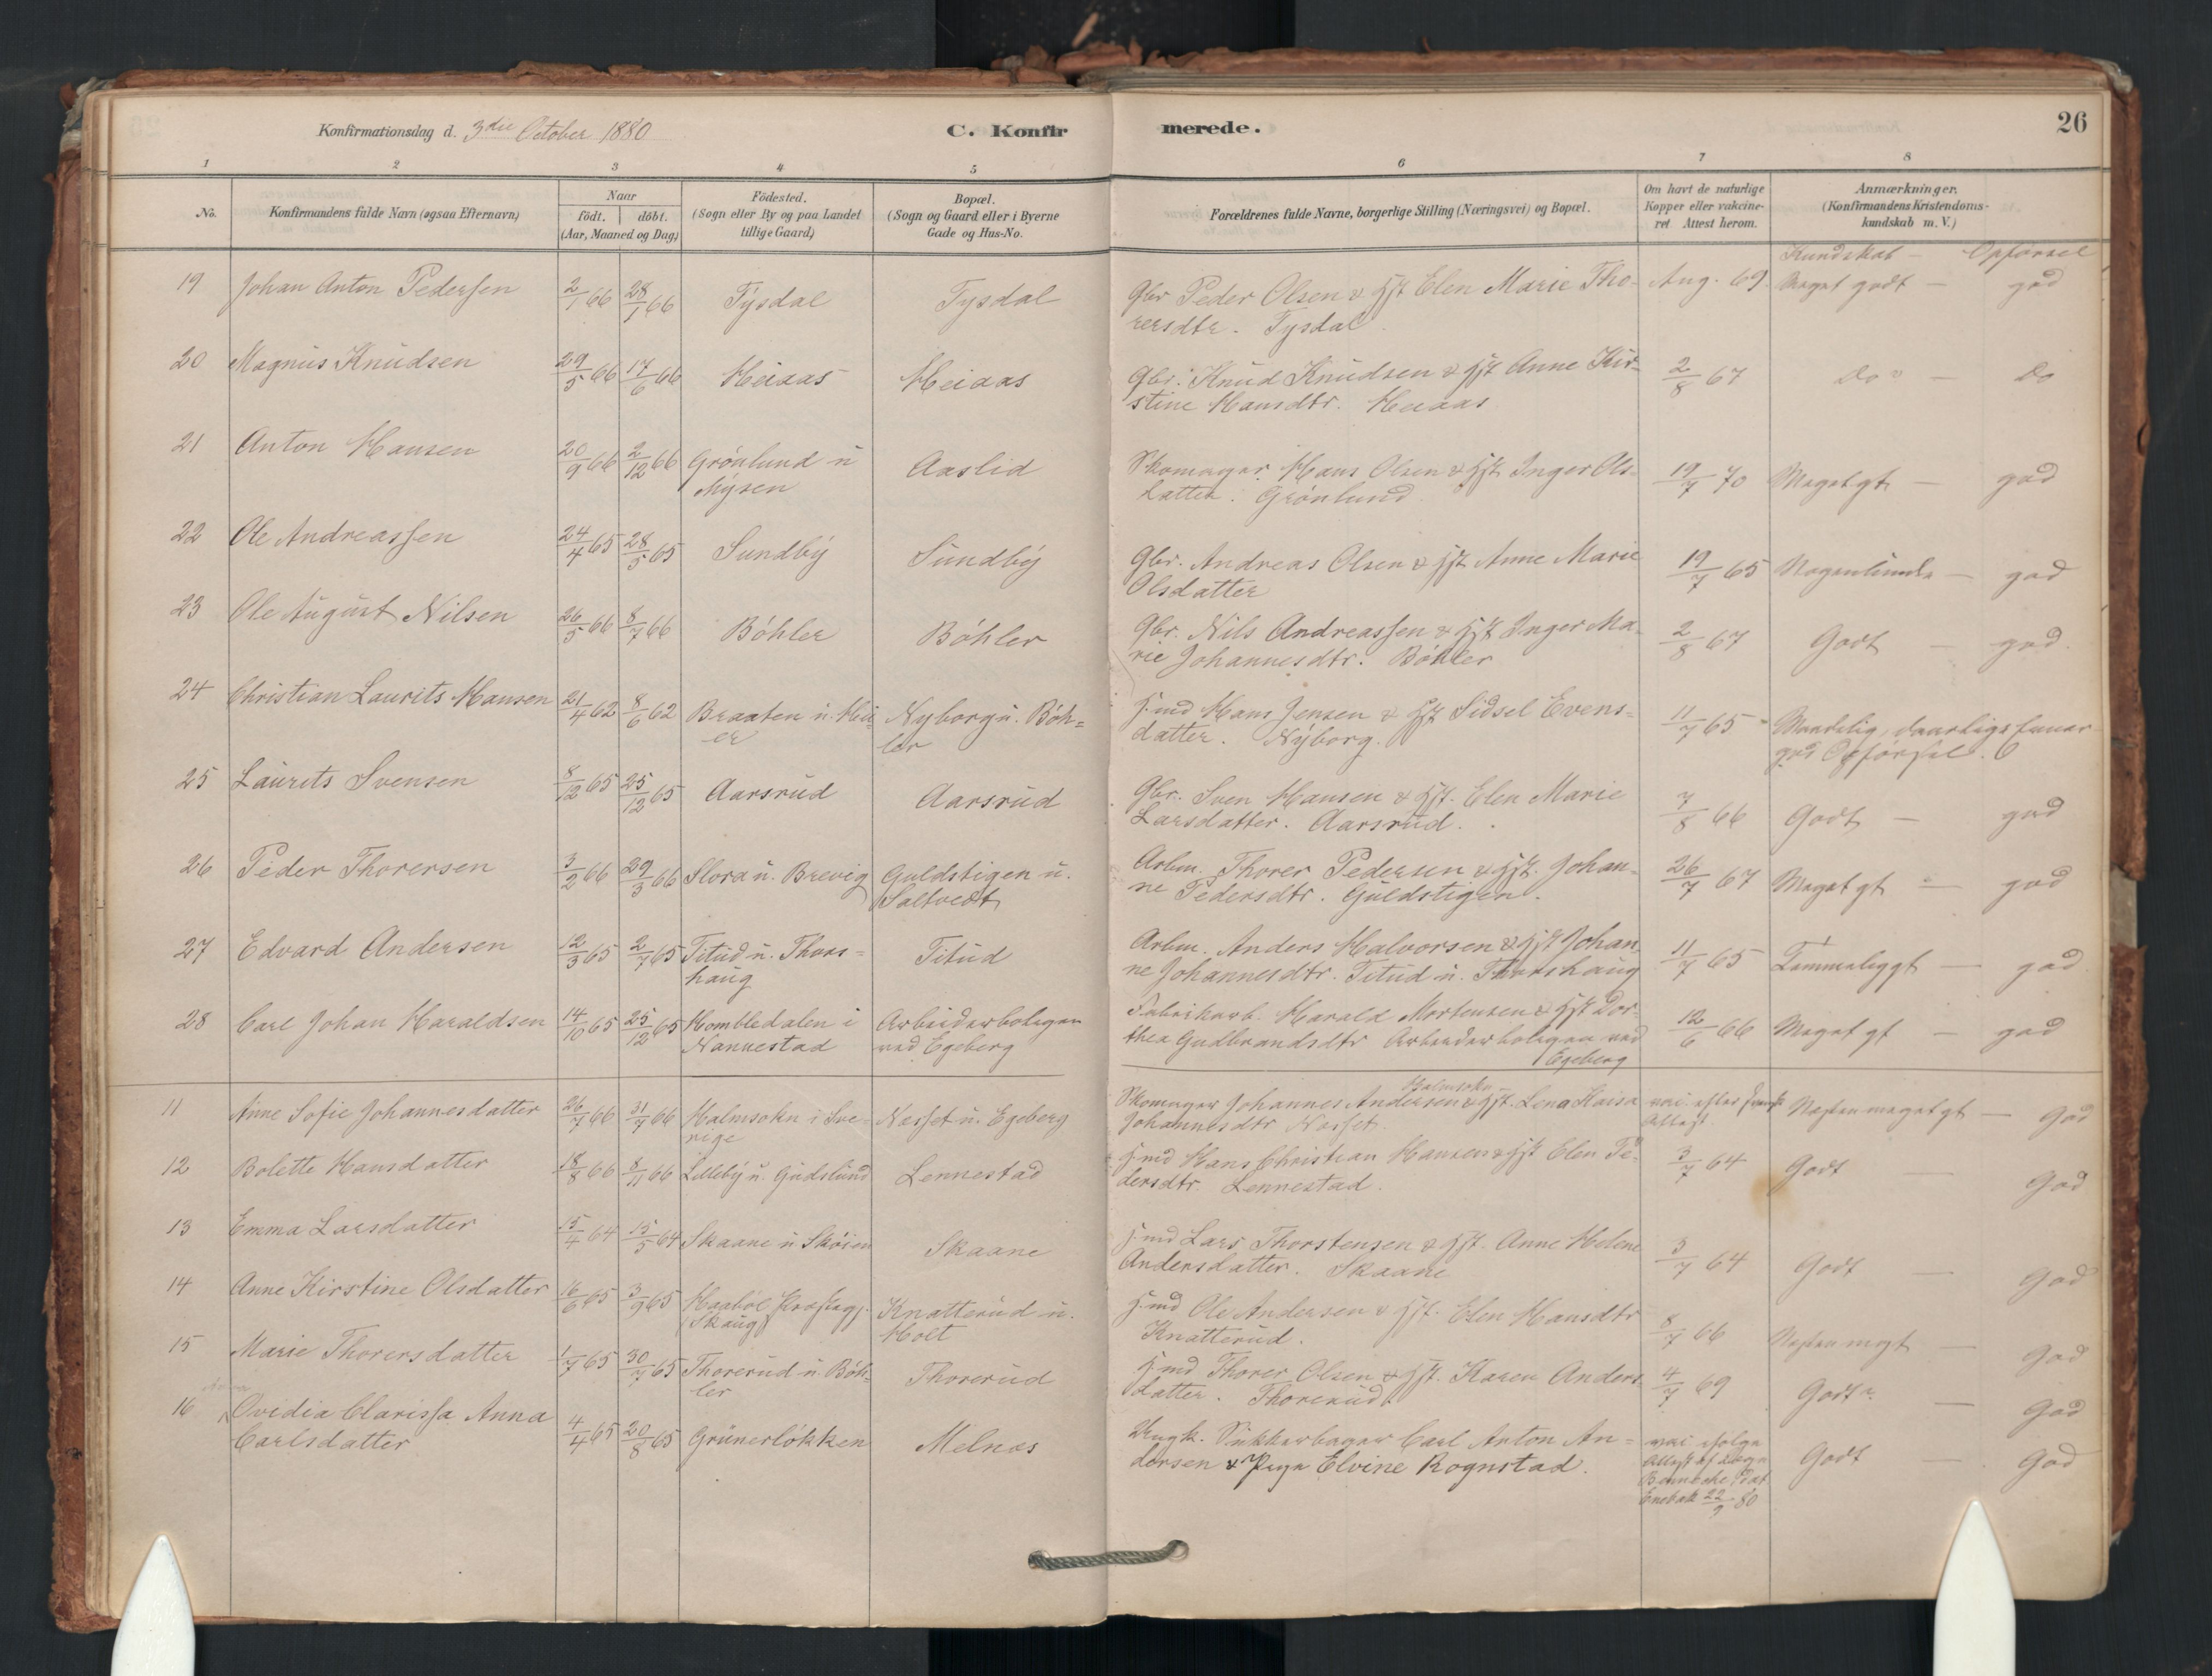 Konfirmationsdag d. 3die October 1880
C. Konfirmerede.
26
1 2 3 4 5 6 7 8
No.
Konfirmandens fulde Navn (ogsaa Efternavn)
Naar
födt. döbt.
(Aar, Maaned og Dag)
Födested.
(Sogn eller By og paa Landet
tillige Gaard)
Bopæl.
(Sogn og Gaard eller i Byerne
Gade og Hus-No.
Forældrenes fulde Navne, borgerlige Stilling (Næringsvei) og Bopæl.
Om havt de naturlige
Kopper eller vakcine-
ret. Attest herom.
Anmærkninger.
(Konfirmandens Kristendoms-
kundskab m. V.)
Kundskab - Opførsel
19 Johan Anton Pederssen 2/1 66 28/1 66 Tysdal Tysdal Gbr Peder Olsen & Hst Elen Marie Tho- Aug. 69. Meget godt - god
rersdtr. Tysdal.
20 Magnus Knudsen 29/5 66 17/6 66 Heiaas Heiaas Gbr. Knud Knudsen & Hst Anne Kir- 2/8 67 Do - Do
stine Hansdtr. Heiaas
21 Anton Hansen 20/9 66 2/12 66 Grönlund u Aaslid Skomager Hans Olsen & Hst Inger Ols- 19/7 70 Meget gt - god
Mysen datter. Grönlund
22 Ole Andreassen 24/4 65 28/5 65 Sundby Sundby Gbr. Andreas Olsen & Hst Anne Marie 19/7 65 Nogenlunde - god
Olsdatter
23 Ole August Nilsen 26/5 66 8/7 66 Böhler Böhler Gbr. Nils Andreassen & Hst Inger Ma- 2/8 67 Godt - god
rie Johannesdtr. Böhler
24 Christian Laurits Hansen 21/4 62 8/6 62 Braaten u. Hei- Nyborg u. Böh- Hmd Hans Jensen & Hst Sidsel Evens- 11/7 65
er ler datter. Nyborg. god Opførsel.
25 Laurits Svensen 8/12 65 25/12 65 Aarsrud Aarsrud Gbr. Sven Hansen & Hst. Elen Marie 7/8 66 Godt - god
Larsdatter. Aarsrud.
26 Peder Thorersen 3/2 66 29/3 66 Slora u. Brevig Guldstigen u. Arbm. Thorer Pedersen & Hst. Johan- 26/7 67 Meget gt - god
Saltvedt ne Pedersdtr. Guldstigen.
27 Edvard Andersen 12/3 65 2/7 65 Titud u. Thors- Titud Arbm. Anders Halvorsen & Hst Johan- 11/7 65 Temmeligt - god
haug ne Johannesdtr. Titud u. Thorshaug
28 Carl Johan Haraldsen 14/10 65 25/12 65 Hombledalen i Arbeiderboligen Fabrikarb. Harald Mortensen & Hst Dor- 12/6 66 Meget gt - god
Nannestad ved Egeberg thea Gudbrandsdtr Arbeiderboligen ved
Egeberg
Halmsokn
11 Anne Sofie Johannesdatter 26/7 66 31/7 66 Halmsokn i Sve- Næsset u. Egeberg Skomager Johannes Andersen & Hst. Lena Kaisa vac. efter svensk Næsten meget gt - God
rige Johannesdtr Næsset. Attest.
12 Bolette Hansdatter 18/8 66 8/11 66 Lilleby u. Gudslund Lennestad Hmd Hans Christian Hansen & Hst Elen Pe- 3/7 64 Godt - God
dersdtr. Lennestad.
13 Emma Larsdatter 15/4 64 15/5 64 Skaane u Skøien Skaane Hmd Lars Thorstensen & Hst. Anne Helene 3/7 64 Godt - God
Andersdatter. Skaane
14 Anne Kirstine Olsdatter 16/6 65 3/9 65 Haaböl Præstegj. Knatterud u. Hmd Ole Andersen & Hst. Elen Hansdtr 8/7 66 Næsten megt - God
(Skaug) Holt Knatterud.
15 Marie Thorersdatter 1/7 65 30/7 65 Thorerud u. Böh- Thorerud Hmd Thorer Olsen & Hst. Karen Anders- 4/7 69 Godt - God
ler datter. Thorerud
16 Ovedia Clarissa Anna 4/4 65 20/8 65 Grünerlökken Melnæs Ungk. Sukkerbager Carl Anton An- vac. ifølge Godt - God
Carlsdatter dersen & Pige Elvine Rognstad. Attest af
Enebak 22/9 80